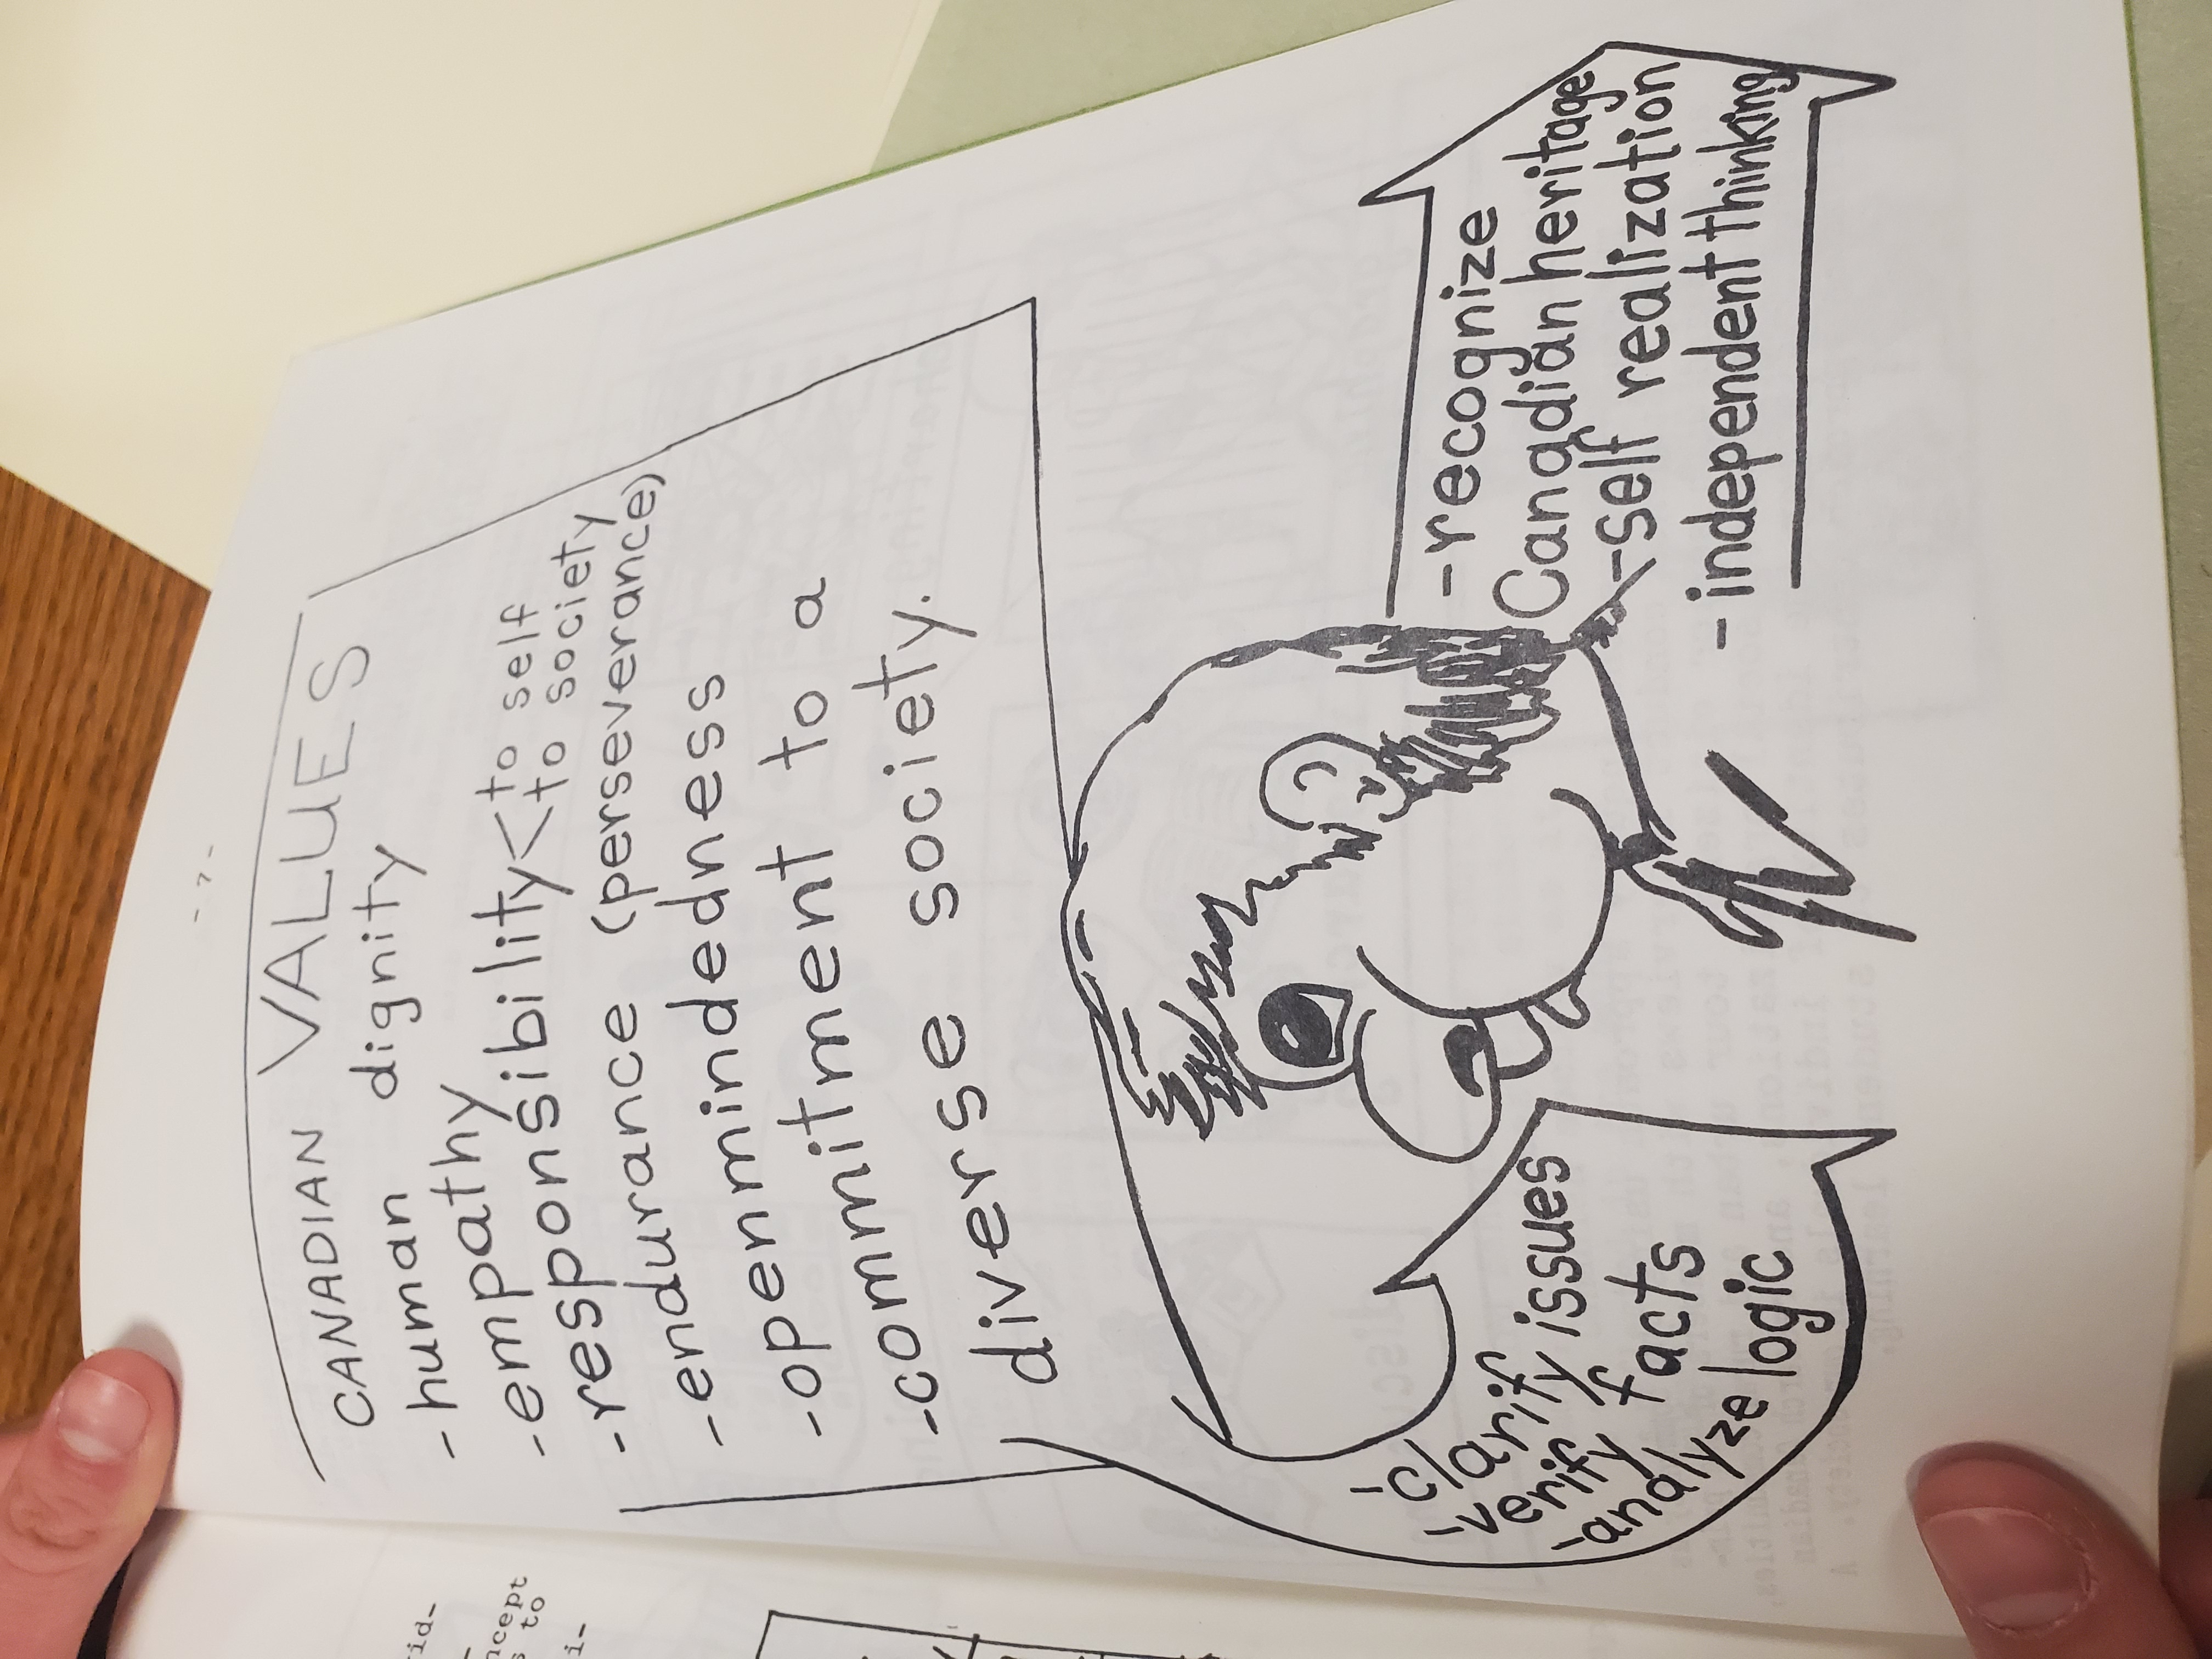 - 7 -
CANADIAN VALUES
-human dignity
-empathy
-responsibility < to self
to society
-endurance (perseverance)
-openmindedness
-commitment to a
diverse society.
-clarify issues
-verify facts
-analyze logic
-recognize
Canadian heritage
-self realization
-independent thinking
rid-
ncept
s to
i-